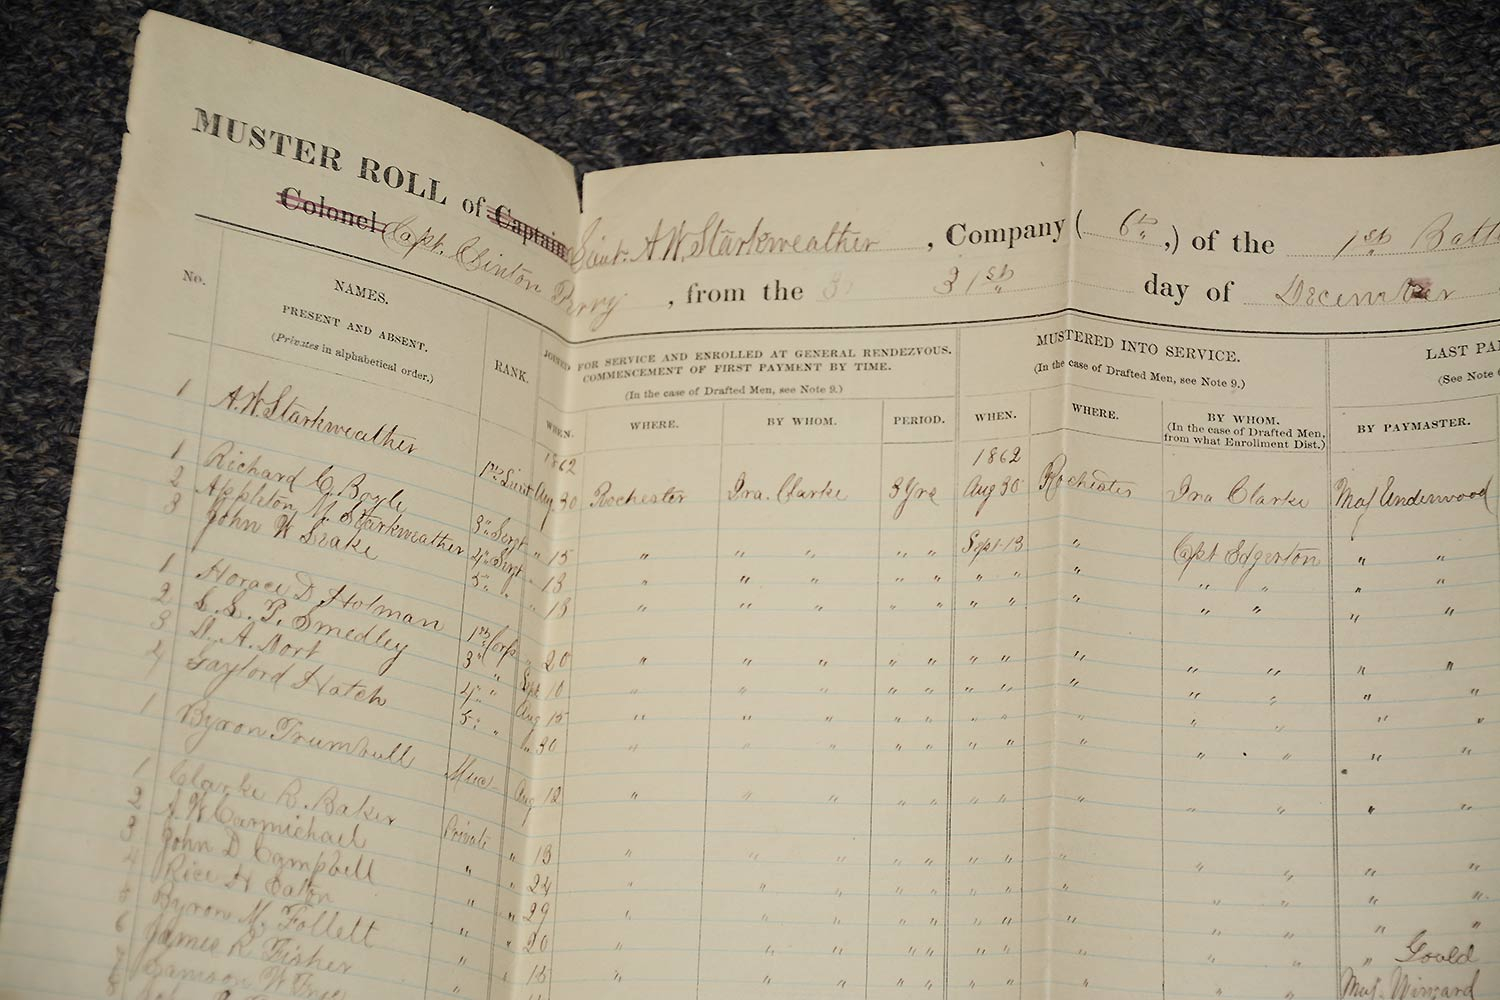 MUSTER ROLL of Captain Lieut. A.W. Starkweather, Company (6th,) of the 1st Batt
Colonel Capt. Clinton Perry, from the 31st day of December
No.
NAMES.
PRESENT AND ABSENT.
(Privates in alphabetical order.)
RANK.
JOINED FOR SERVICE AND ENROLLED AT GENERAL RENDEZVOUS.
COMMENCEMENT OF FIRST PAYMENT BY TIME.
(In the case of Drafted Men, see Note 9.)
WHEN. WHERE. BY WHOM. PERIOD.
MUSTERED INTO SERVICE.
(In the case of Drafted Men, see Note 9.)
WHEN. WHERE. BY WHOM.
(In the case of Drafted Men,
from what Enrollment Dist.)
LAST PA
(See Note
BY PAYMASTER.
1862 1862
1 A.W. Starkweather 1st Lieut Aug. 30 Rochester Ira. Clarke 3 Yrs Aug 30 Rochester Ira Clarke Maj Underwood
1 Richard C. Boyle 3" Sergt " 15 " " " " " Sept. 13 " Capt Edgerton " "
2 Appleton M. Starkweather 4" Sergt " 13 " " " " " " " " " " " "
3 John W. Leake 5" " " 13 " " " " " " " " " " " "
1 Horace D. Holman 1st Corp " 20 " " " " " " " " " " " "
2 S. S. P. Smedley 3" " Sept. 10 " " " " " " " " " " " "
3 D. A. Dort 4" " Aug 15 " " " " " " " " " " " "
4 Gaylord Hatch 5" " " 30 " " " " " " " " " " " "
1 Byron Trumbull Muc- Aug 12 " " " " " " " " " " " "
1 Clarke B. Baker Private " 13 " " " " " " " " " " " "
2 A. W. Carmichael " " 24 " " " " " " " " " " " "
3 John D. Campbell " " 29 " " " " " " " " " " " "
4 Rice H. Eaton " " 20 " " " " " " " " " " " Gould
5 Byron M. Follett " " 15 " " " " " " " " " " Maj.
6 James R. Fisher "
7 Samson W.
8